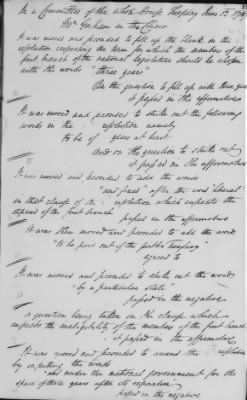 In a Committee of the whole House Tuesday June 12. 
Mr. Gorham in the Chair
It was moved and seconded to fill up the blank in the
resolution respecting the term for which the members of the
first branch of the national legislature should be chosen
with the words "three years"
On the question to fill up with three years
it passed in the affirmative
It was moved and seconded to strike out the following
words in the resolution namely
to be of years at least
and on the question to strike out
it passed in the affirmative
It was moved and seconded to add the words
"and fixed" after the word "liberal"
in that clause of the resolution which respects the
stipend of the first branch
passed in the affirmative
It was then moved and seconded to add the words
"to be paid out of the public Treasury"
agreed to
It was moved and seconded to strike out the words
"by a particular state"
passed in the negative
a question being taken on the clause which
respects the ineligibility of the members of the first branch
it passed in the affirmative
It was moved and seconded to amend the resolution
by inserting the words
"and under the national government for the
space of three years after its expiration"
passed in the negative